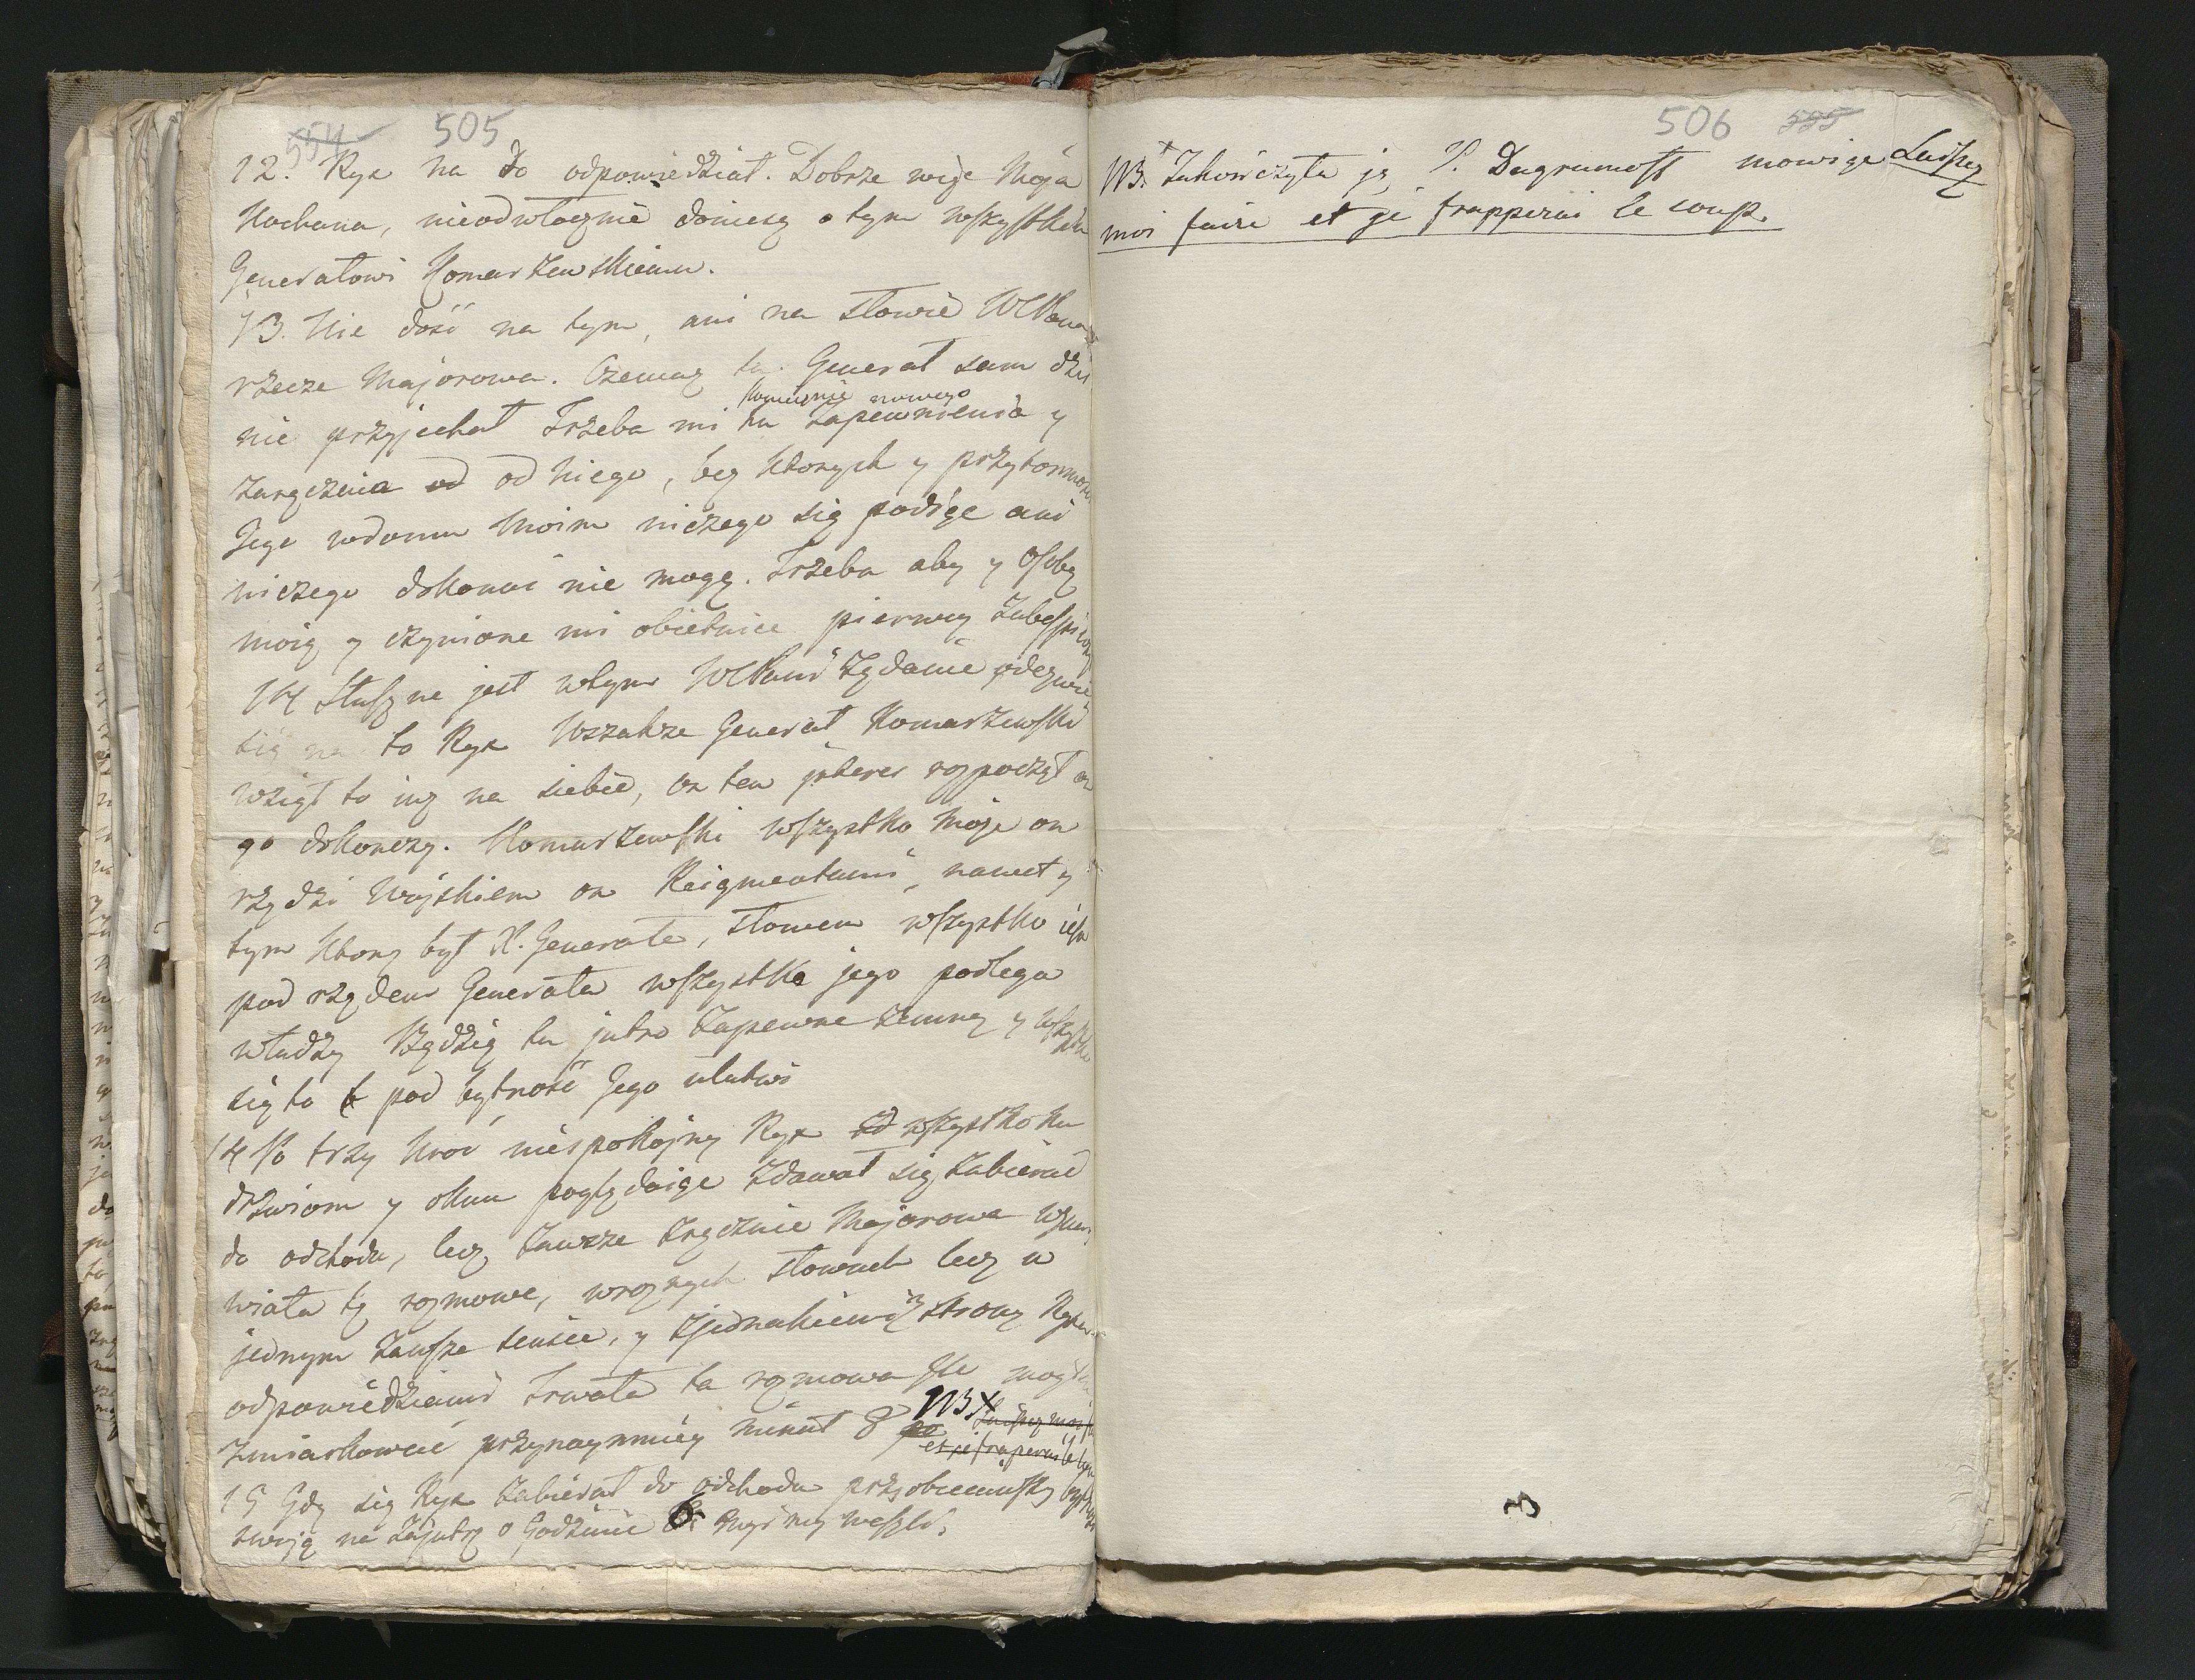 554 505
12. Ryx na to odpowiedział. Dobrze więc Moja
Kochana, nieodwłocznie doniosę o tym wszystkim
Generałowi Komarzewskiemu.
13. Nie dość na tym, ani na słowie WCPana
rzecze Majorowa. Czemuż tu Generał sam dziś
koniecznie nowego
nie przyjechał Trzeba mi tu zapewnienia y
zaręczenia od od Niego, bez ktorych y przytomności
Jego wdomu Moim niczego się podjąc ani
niczego dokonać nie mogę. Trzeba aby y Osobę
moią y czynione mi obietnice pierwey zabespieczył
14 Słuszne jest wtym WCPani żądanie odezwie
się na to Ryx Wszakze Generał Komarzewski
wziął to iuz na siebie, on ten jnteres rozpoczął on
go dokonczy. Komarzewski wszystko może on
rządzi Woyskiem on Reigmentami, nawet y
tym ktory był X. Generała, słowem wszystko iest
pod rządem Generała wszystko jego podlega
władzy Będzię tu jutro zapewne zemną y wszystko
się to pod bytność Jego ułatwi
14 Po trzy kroć niespokojny Ryx wszystko ku
drzwiom y oknu poglądaiąc zdawał się zabierać
do odchodu, lecz zawsze zręcznie Majorowa wzna
wiała tę rozmowę, wroznych słowach lecz w
jednym zawsze sensie, y zjednakiemiż strony Ryxa
odpowiedziami trwała ta rozmowa ile mogłem
zmiarkować przynaymniey minut 8 NB x Laissez moi fa
et je fraperai le
15 Gdy się Ryx zabierał do odchodu przyobiecawszy bytność
swoją na zajutrz o Godzinie 6 my weszli,
506 555
NB. x Zakończyła ją P. Dugrumoff mowiąc Laissez
moi faire et je frapperai le coup.